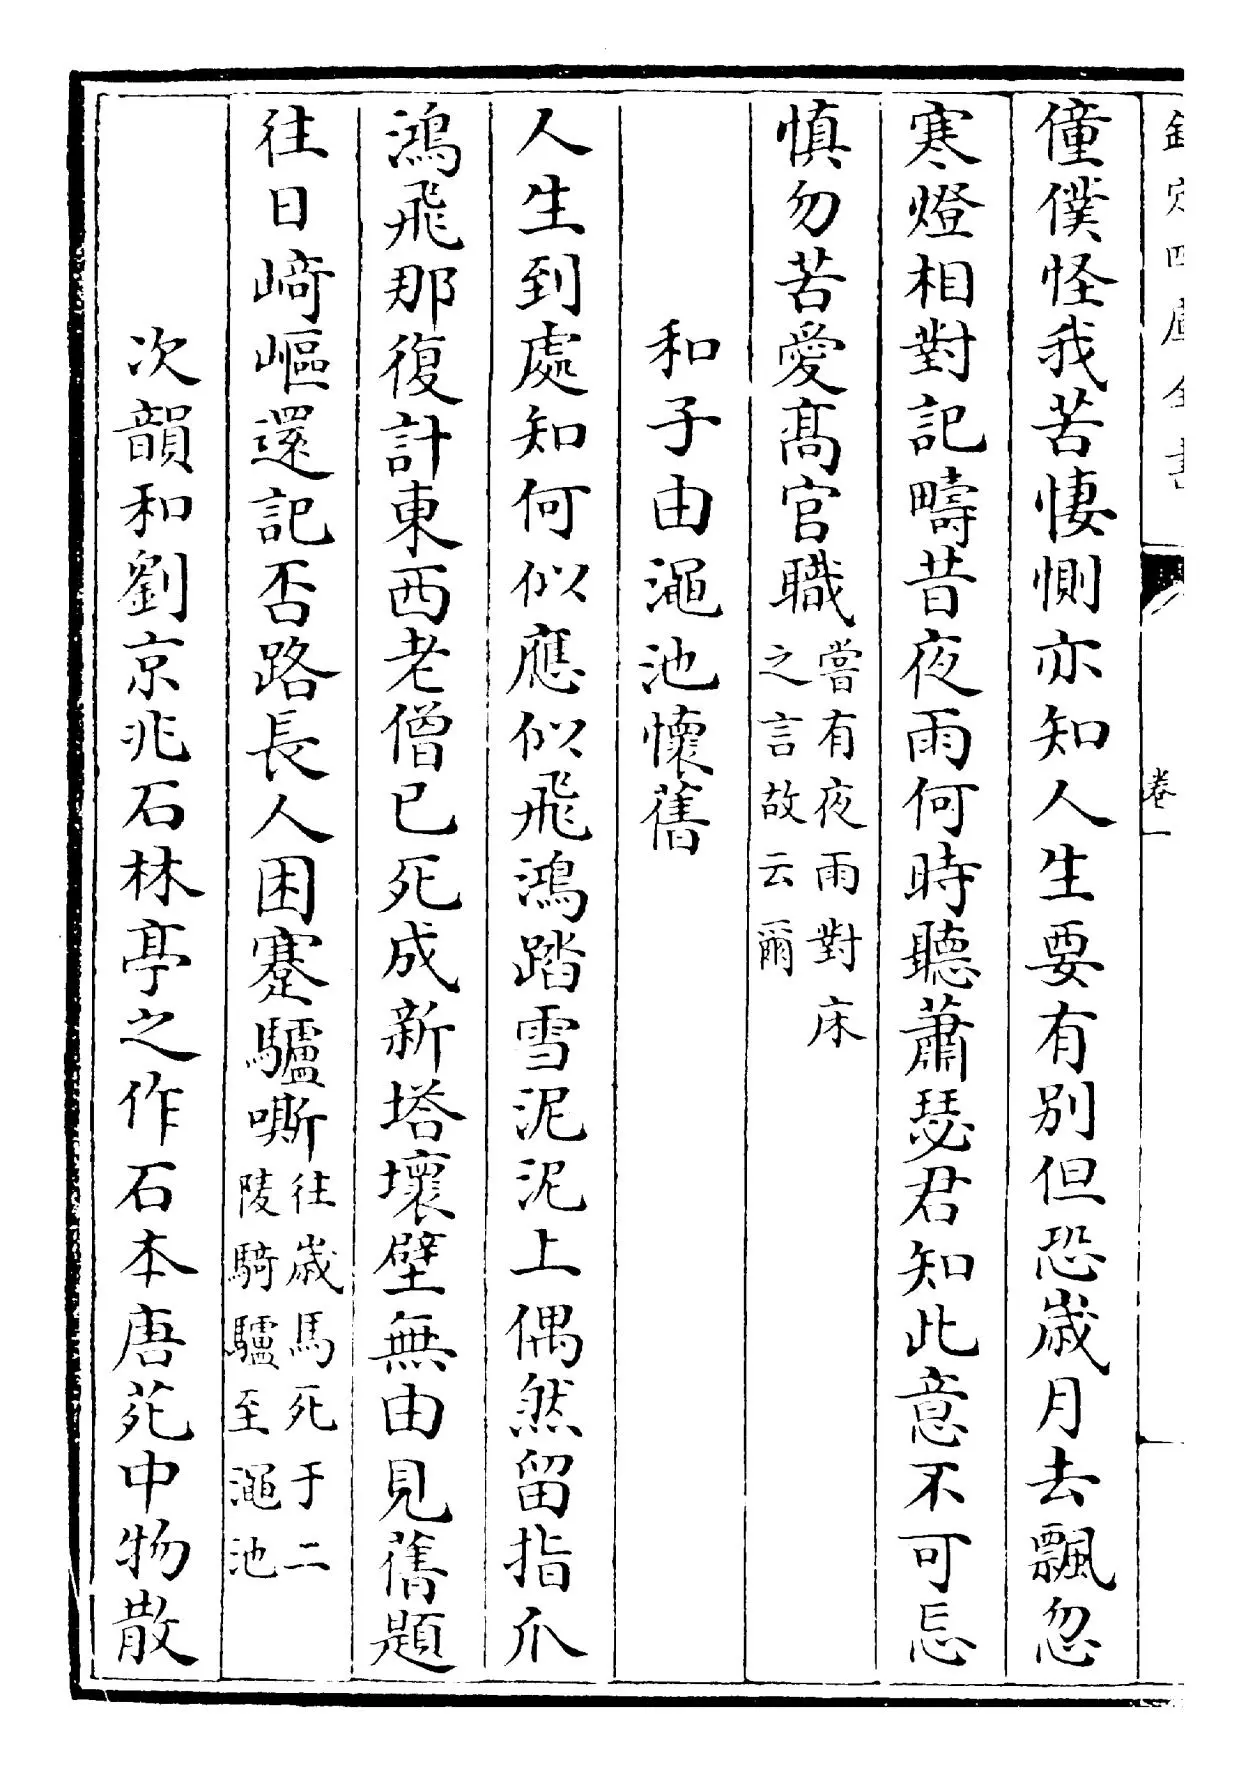 欽定四庫全書
卷一
僮僕怪我苦悽惻亦知人生要有别但恐歲月去飄忽
寒燈相對記疇昔夜雨何時聽蕭瑟君知此意不可忘
慎勿苦愛髙官職嘗有夜雨對床之言故云爾
和子由澠池懷舊
人生到處知何似應似飛鴻踏雪泥泥上偶然留指爪
鴻飛那復計東西老僧已死成新塔壞壁無由見舊題
往日崎嶇還記否路長人困蹇驢嘶往歲馬死于二陵騎驢至澠池
次韻和劉京兆石林亭之作石本唐苑中物散